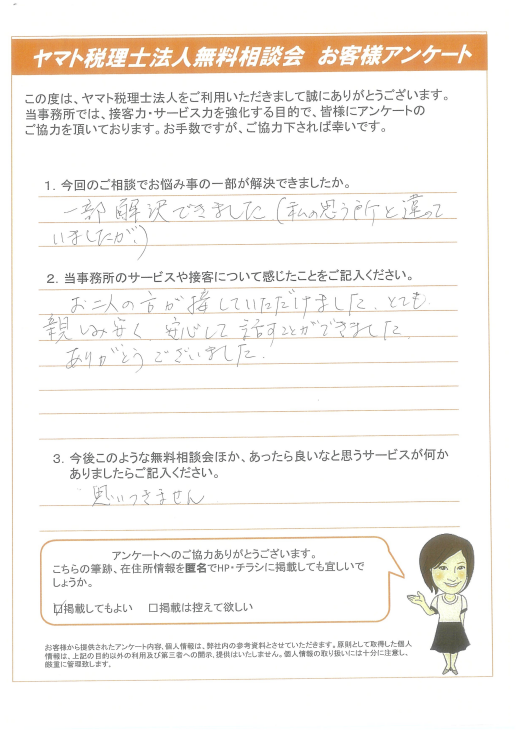 ヤマト税理士法人無料相談会 お客様アンケート
この度は、ヤマト税理士法人をご利用いただきまして誠にありがとうございます。
当事務所では、接客力・サービス力を強化する目的で、皆様にアンケートの
ご協力を頂いております。お手数ですが、ご協力下されば幸いです。
1. 今回のご相談でお悩み事の一部が解決できましたか。
一部解決できました(私の思う所と違って
いましたが、)
2. 当事務所のサービスや接客について感じたことをご記入ください。
お二人の方が接していただけました。とても
親しみ安く、安心して話すことができました。
ありがとうございました。
3. 今後このような無料相談会ほか、あったら良いなと思うサービスが何か
ありましたらご記入ください。
思いつきません
アンケートへのご協力ありがとうございます。
こちらの筆跡、在住所情報を匿名でHP・チラシに掲載しても宜しいで
しょうか。
☑掲載してもよい □掲載は控えて欲しい
お客様から提供されたアンケート内容、個人情報は、弊社内の参考資料とさせていただきます。原則として取得した個人
情報は、上記の目的以外の利用及び第三者への開示、提供はいたしません。個人情報の取り扱いには十分に注意し、
厳重に管理致します。